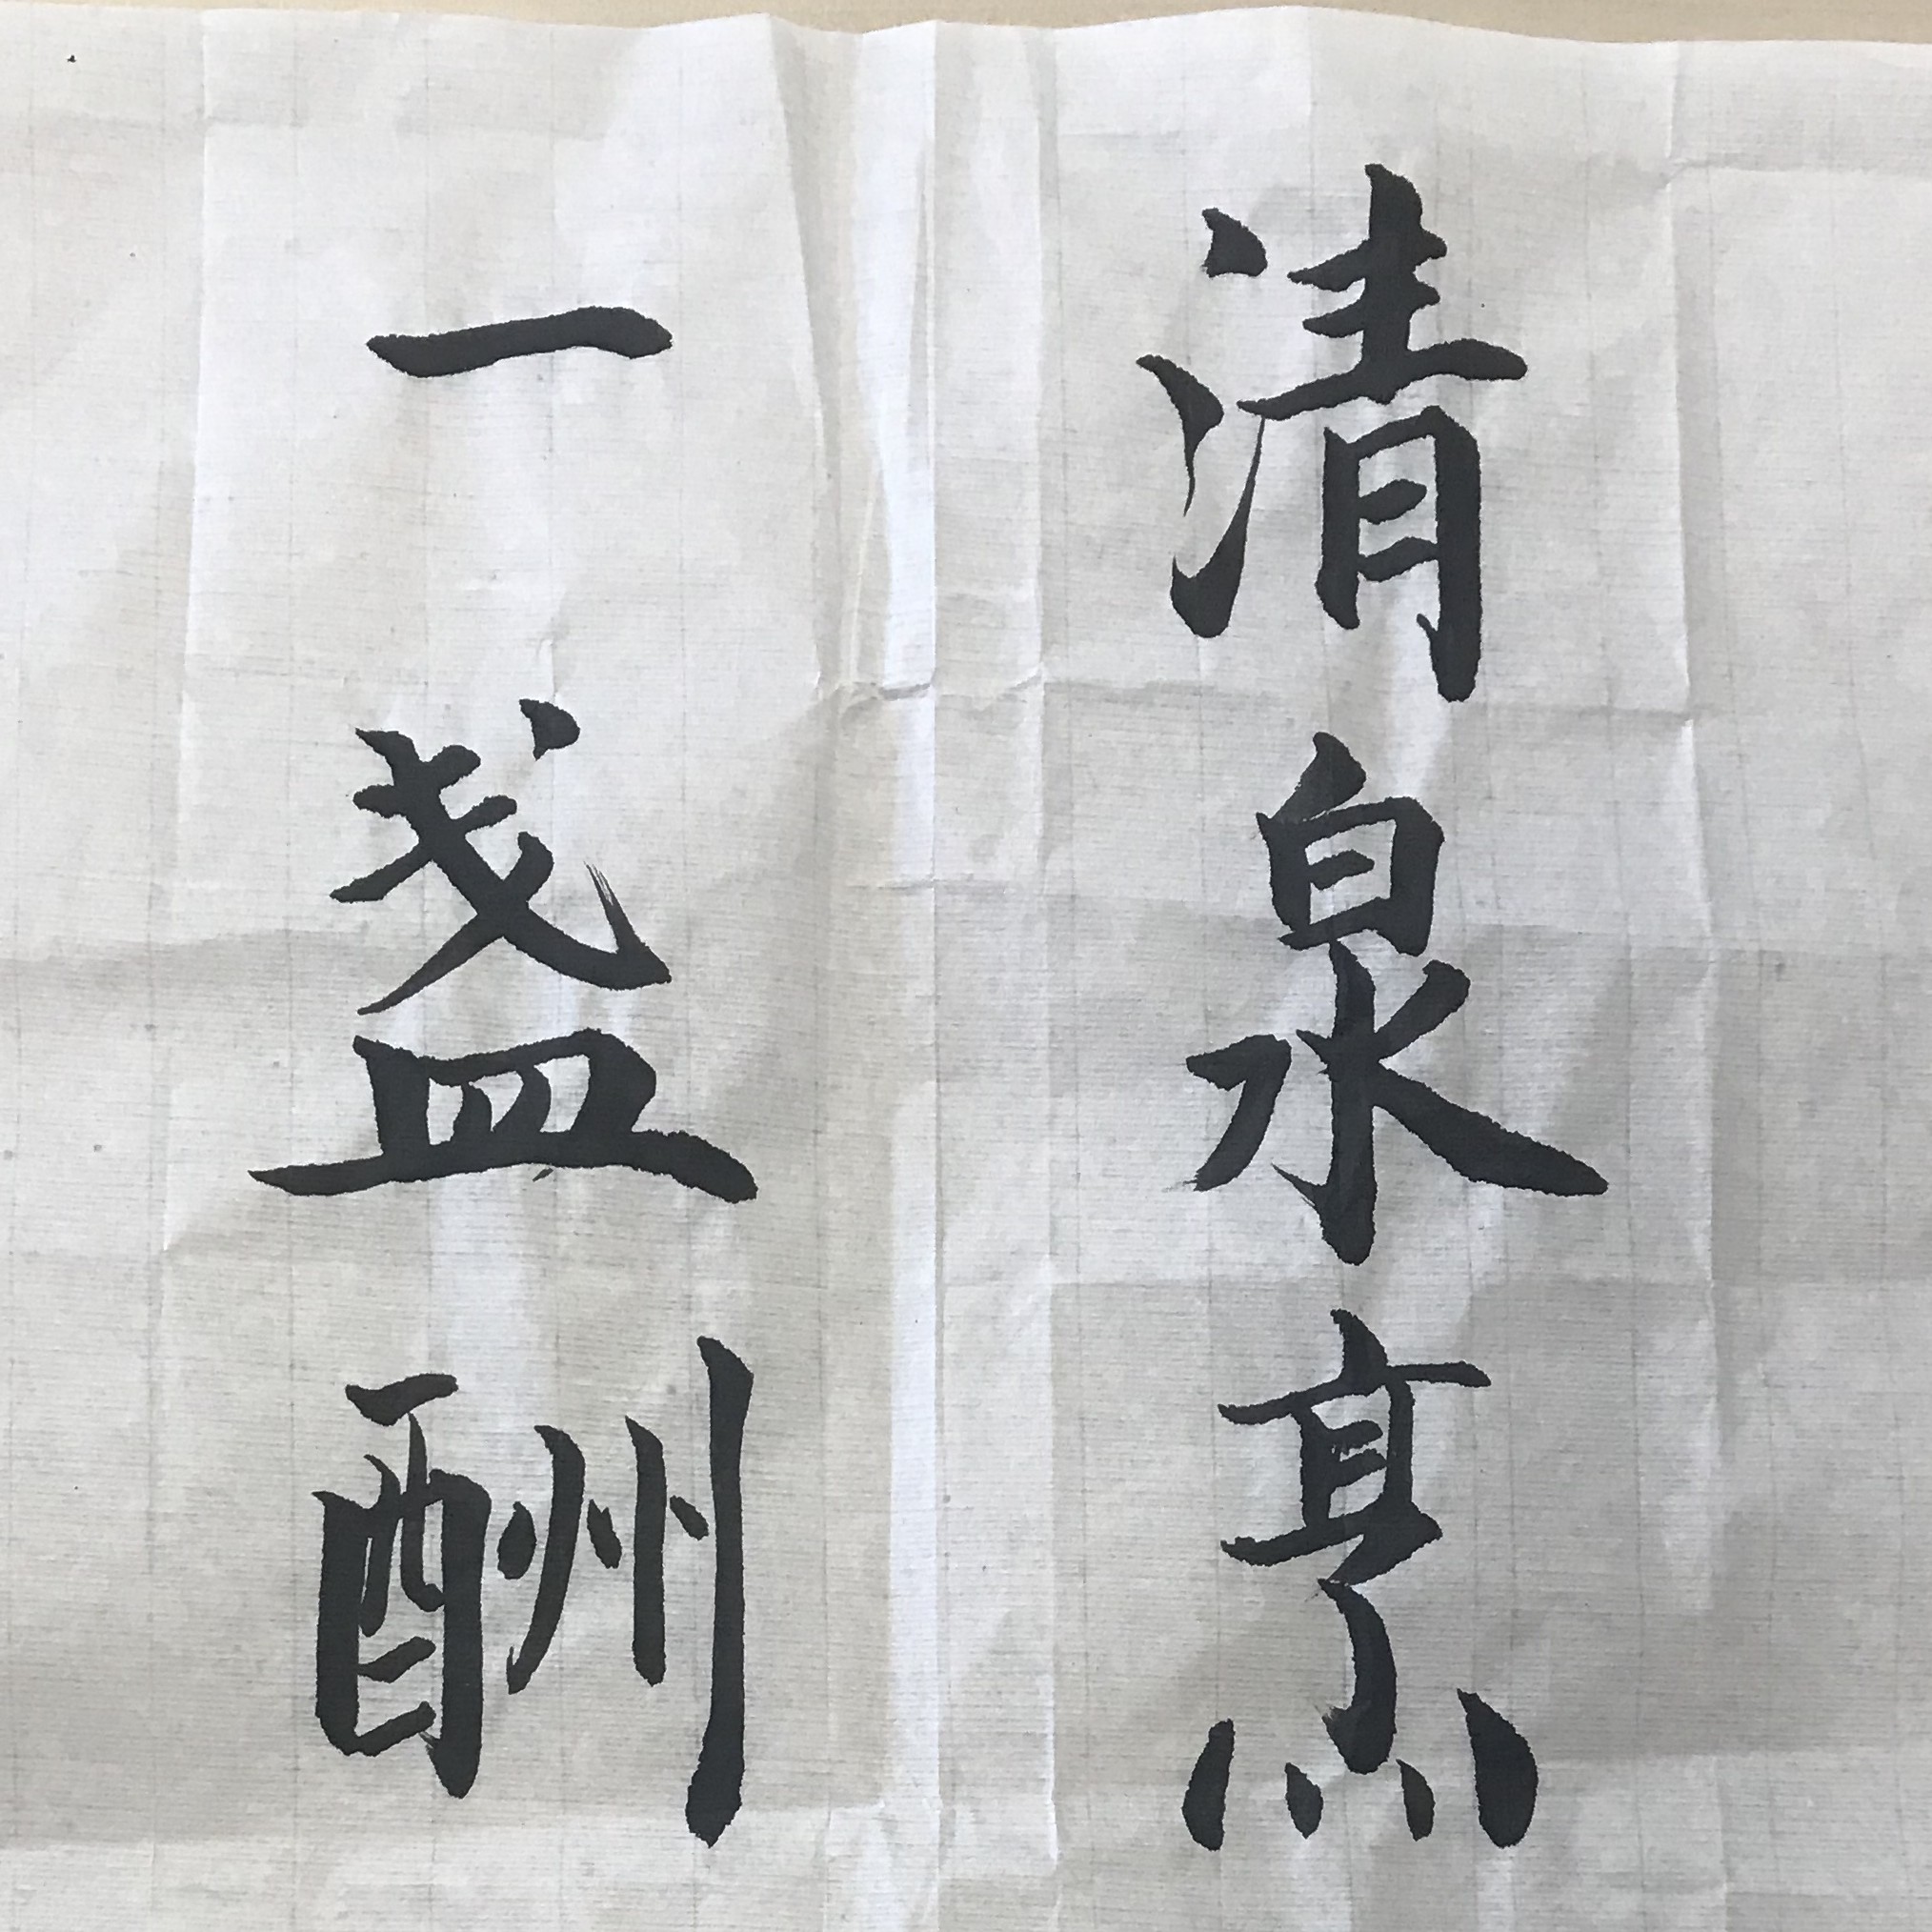 清泉烹
一盏酬